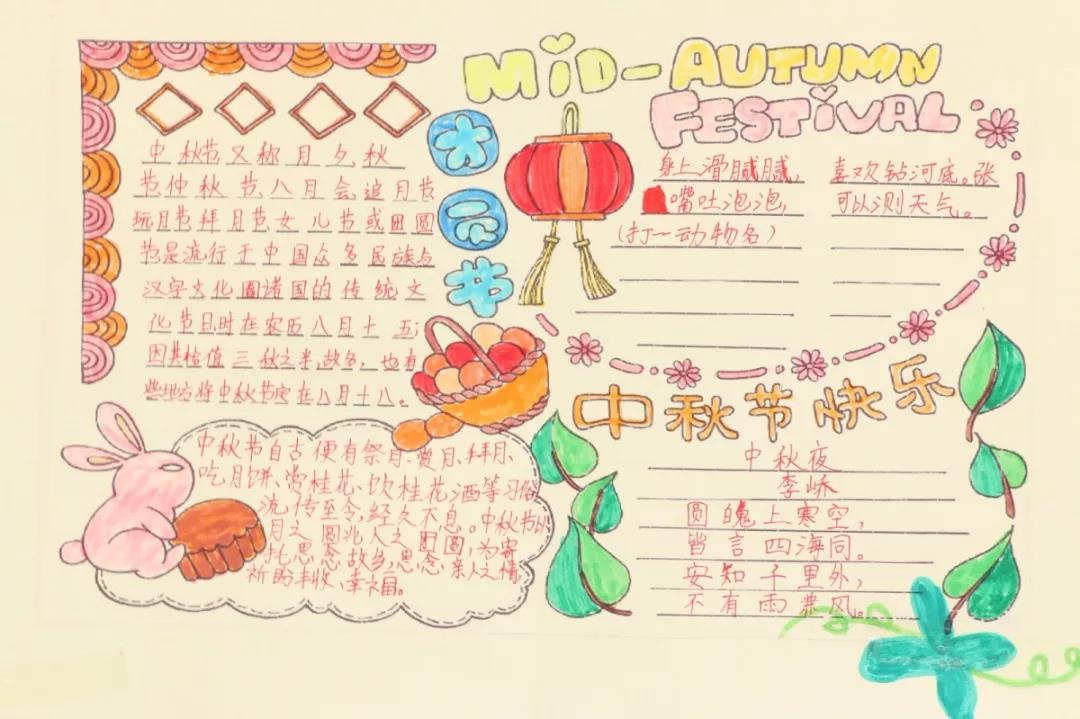 MiD-AUTUMN
FESTiVAL
中秋节又称月夕、秋
节、仲秋节、八月会、追月节
玩月节、拜月节、女儿节或团圆
节是流行于中国众多民族与
汉字文化圈诸国的传统文
化节日时在农历八月十五;
因其恰值三秋之半,故名,也有
些地方将中秋节定在八月十六。
身上滑腻腻,
喜欢钻河底。张
嘴吐泡泡,
可以测天气。
(打一动物名)
中秋节快乐
中秋夜
李峤
圆魄上寒空,
皆言四海同。
安知千里外,
不有雨兼风。
中秋节自古便有祭月、赏月、拜月、
吃月饼、赏桂花、饮桂花酒等习俗
流传至今,经久不息。中秋节以
月之圆兆人之团圆,为寄
托思念故乡,思念亲人之情
祈盼丰收、幸福。